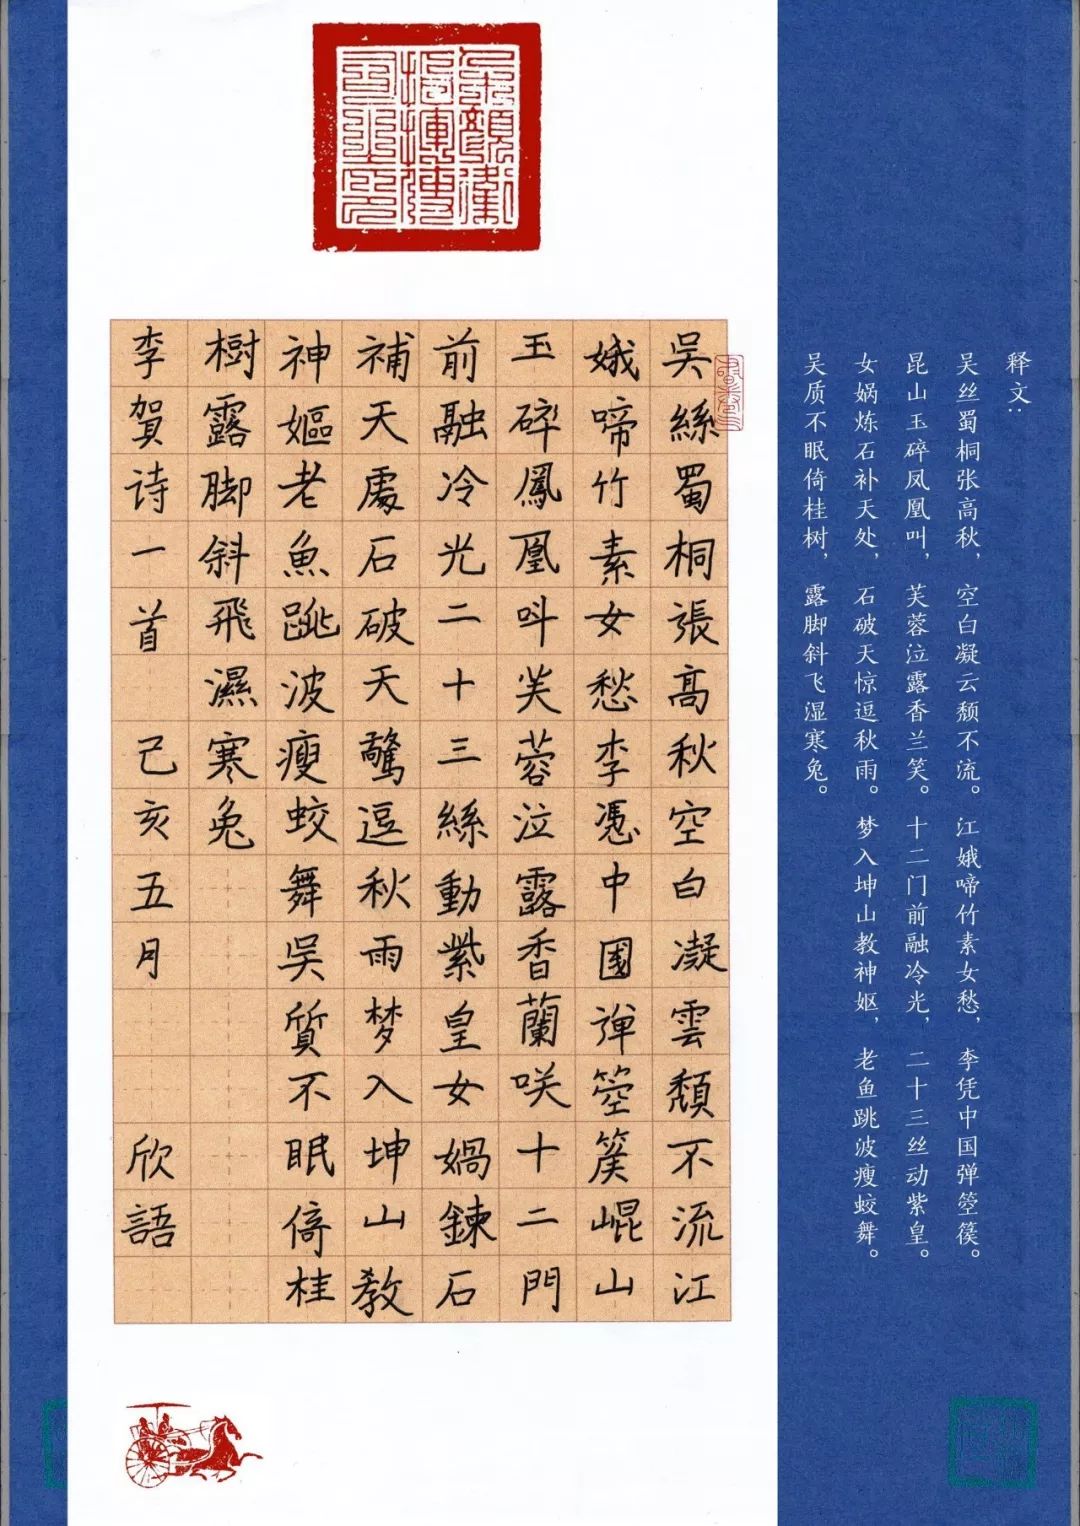 释文：
吴丝蜀桐张高秋，空白凝云颓不流。江娥啼竹素女愁，李凭中国弹箜篌。
昆山玉碎凤凰叫，芙蓉泣露香兰笑。十二门前融冷光，二十三丝动紫皇。
女娲炼石补天处，石破天惊逗秋雨。梦入坤山教神妪，老鱼跳波瘦蛟舞。
吴质不眠倚桂树，露脚斜飞湿寒兔。
吳絲蜀桐張髙秋空白凝雲頹不流江
娥啼竹素女愁李慿中國彈箜篌崐山
玉碎鳳凰叫芙蓉泣露香蘭咲十二門
前融冷光二十三絲動紫皇女媧鍊石
補天處石破天驚逗秋雨梦入坤山教
神嫗老魚跳波瘦蛟舞吳質不眠倚桂
樹露脚斜飛濕寒兔
李賀诗一首 己亥五月 欣語